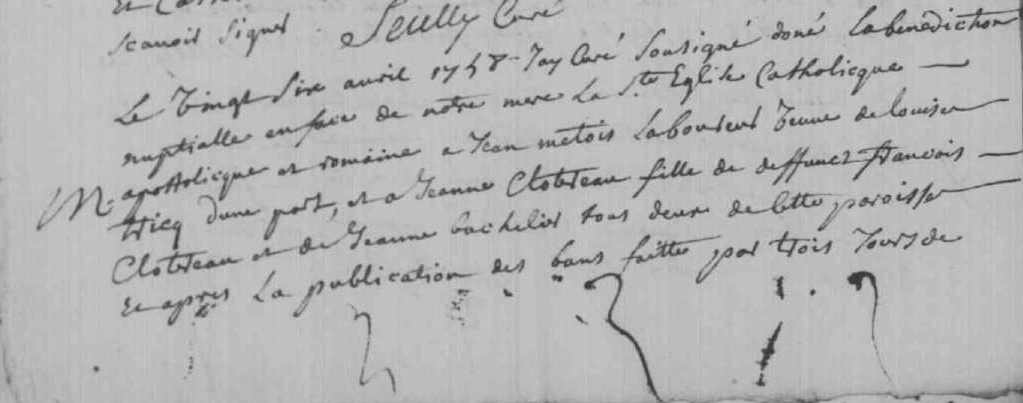 et
scavoir signer. Seully Curé
Le vingt six avril 1758 Jay Curé sousigné doné la benediction
nuptialle en face de notre mere la Ste Eglise Catholicque
M. apostolicque et romaine a Jean metois laboureur veuve de louise
tricq dune part, et a Jeanne Clotreau fille de deffunct francois
Clotreau et de Jeanne bachelier tous deux de cette paroisse
Et apres la publication des bans faitte par trois jours de